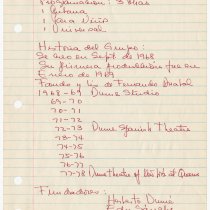 Programación: 3 Obras
1 Gitana
1 Para Niños
1 Universal
Historia del Grupo:
Se creo en Sept de 1968
Su primera producción fue en
Enero de 1969
Fando y Lis de Fernando Arrabal
1968-69 Dumé Studio
69-70
70-71
71-72
72-73 Dumé Spanish Theatre
73-74
74-75
75-76
76-77
77-78 Dume Theatre of the Arts at Queens
Fundadores:
Herberto Dumé